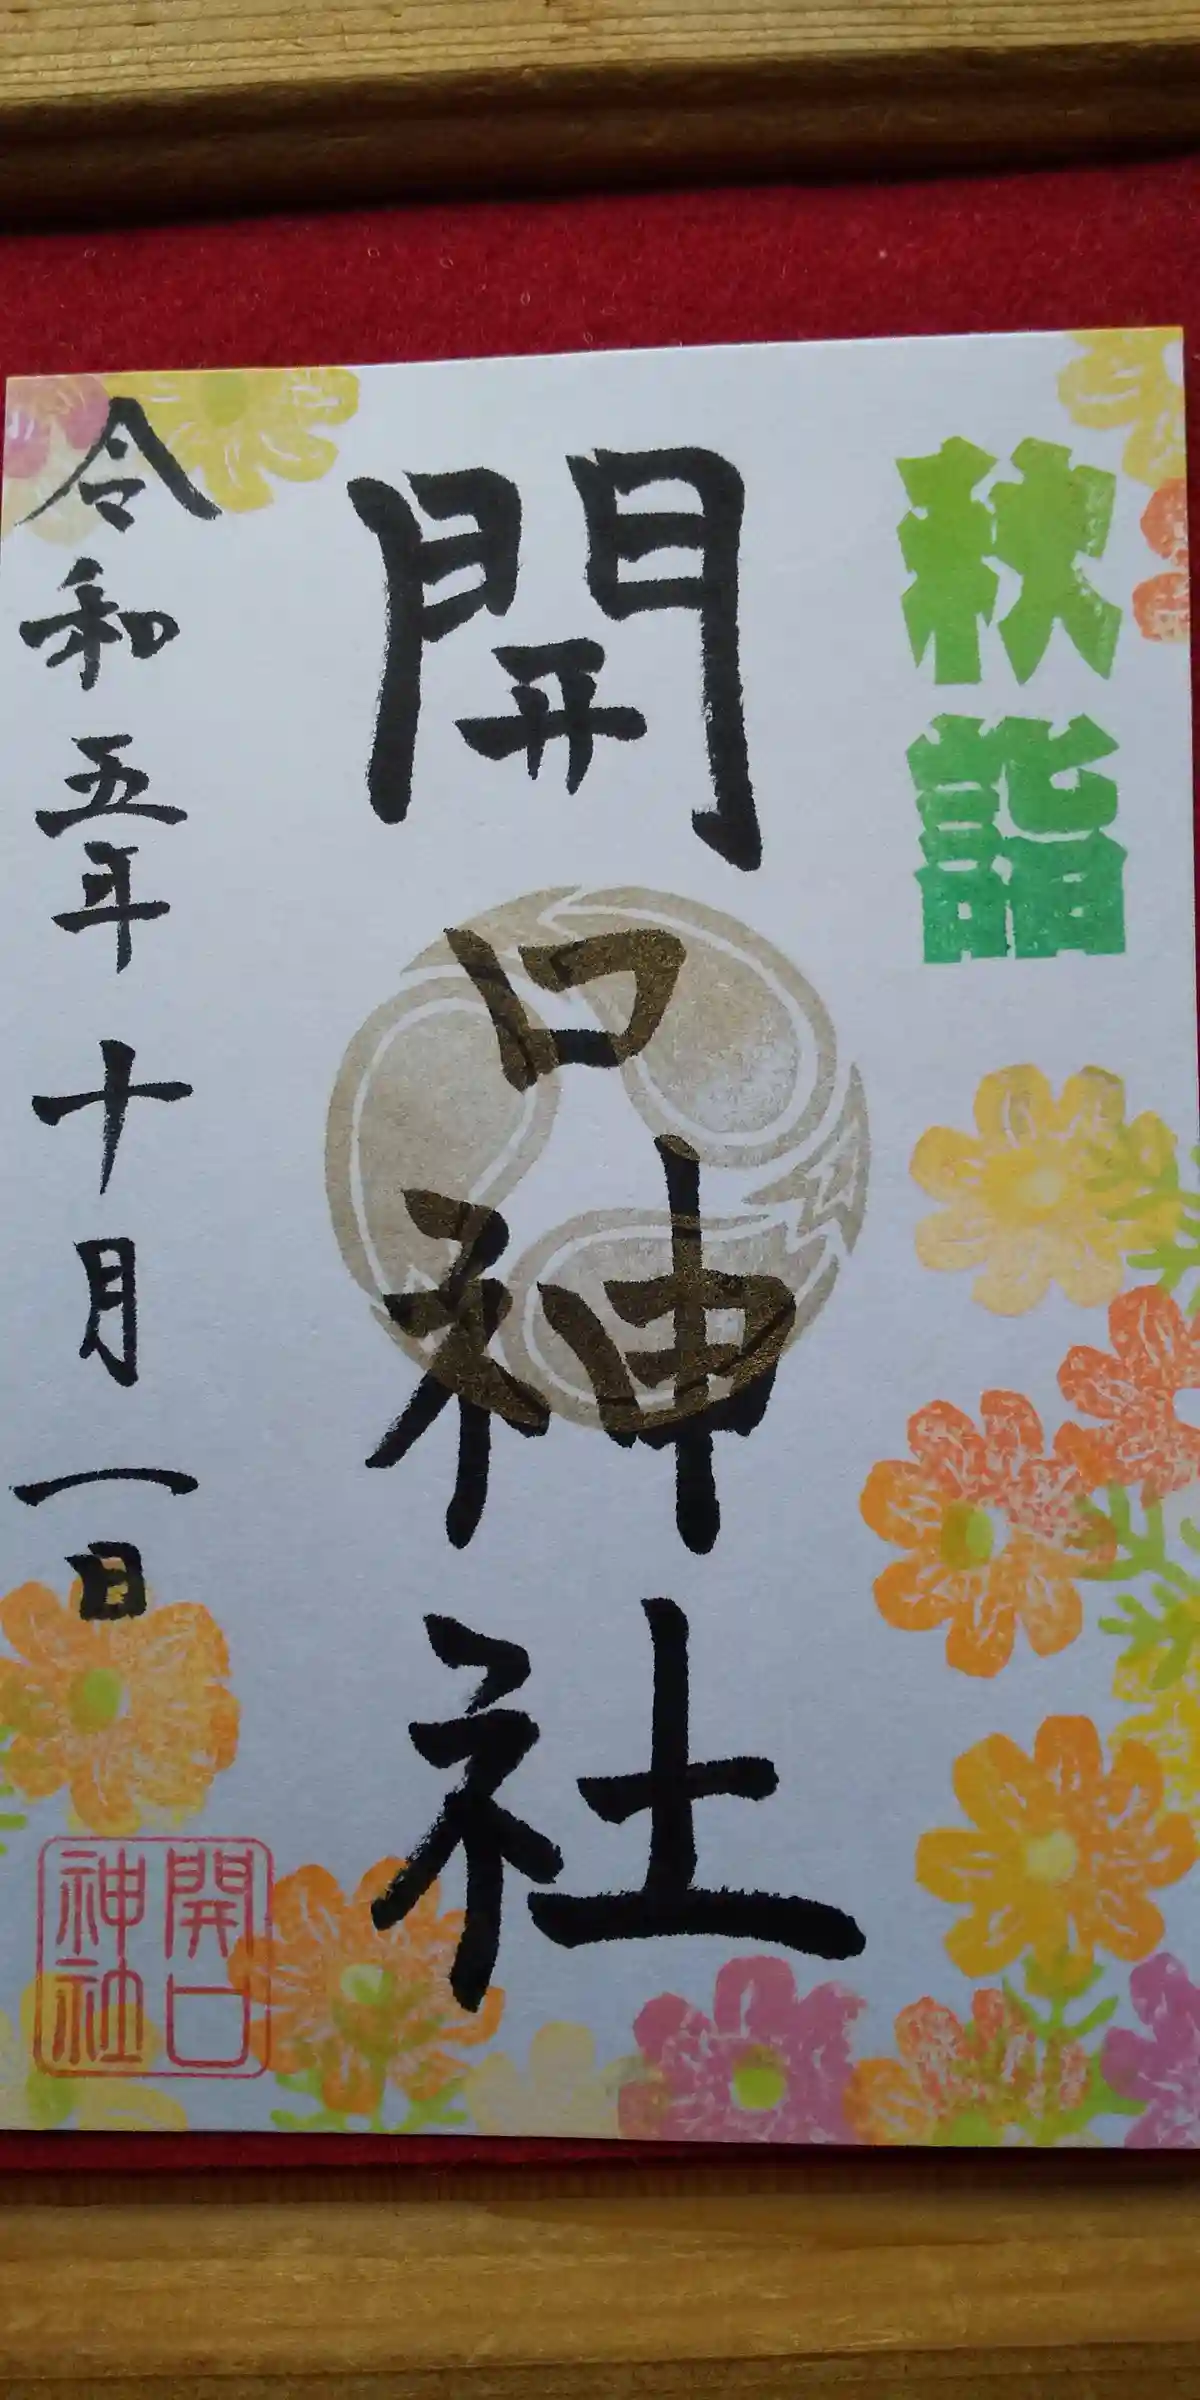 秋詣
開口神社
令和五年十月一日
開口
神社